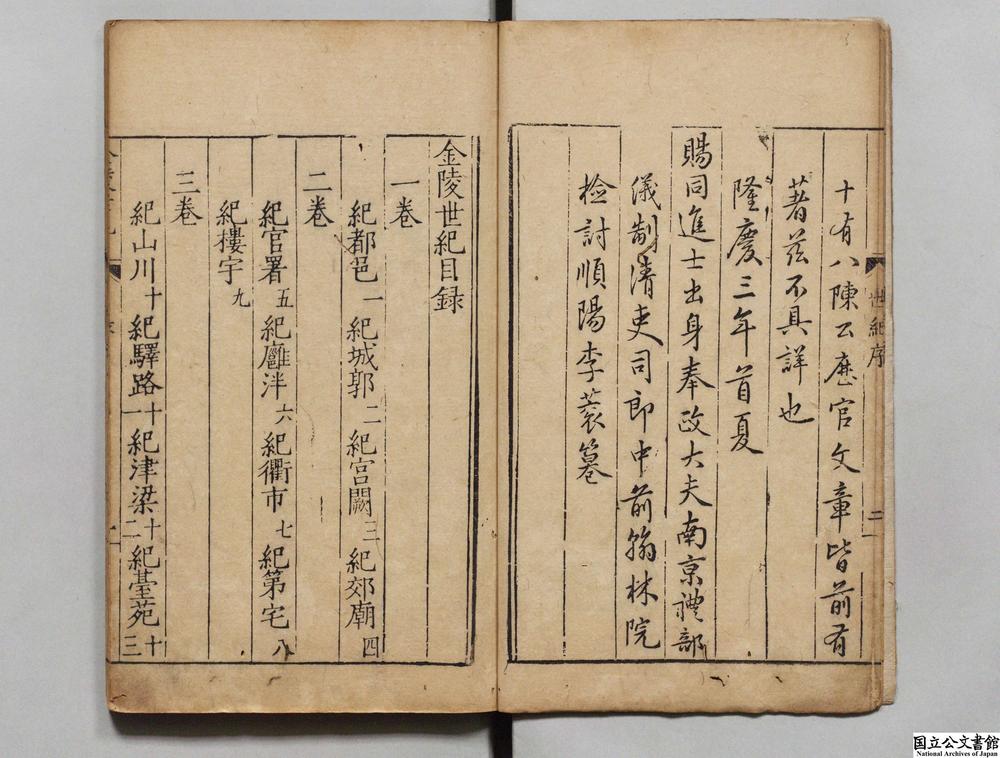 十有八陳公歷官文章皆前有
著茲不具詳也
隆慶三年首夏
賜同進士出身奉政大夫南京禮部
儀制清吏司郎中前翰林院
檢討順陽李蓘篹
世紀序
二
金陵世紀目録
一卷
紀都邑一 紀城郭二 紀宮闕三 紀郊廟四
二卷
紀官署五 紀廱泮六 紀衢市七 紀第宅八
紀樓宇九
三卷
紀山川十 紀驛路十一 紀津梁十二 紀臺苑十三
国立公文書館
National Archives of Japan